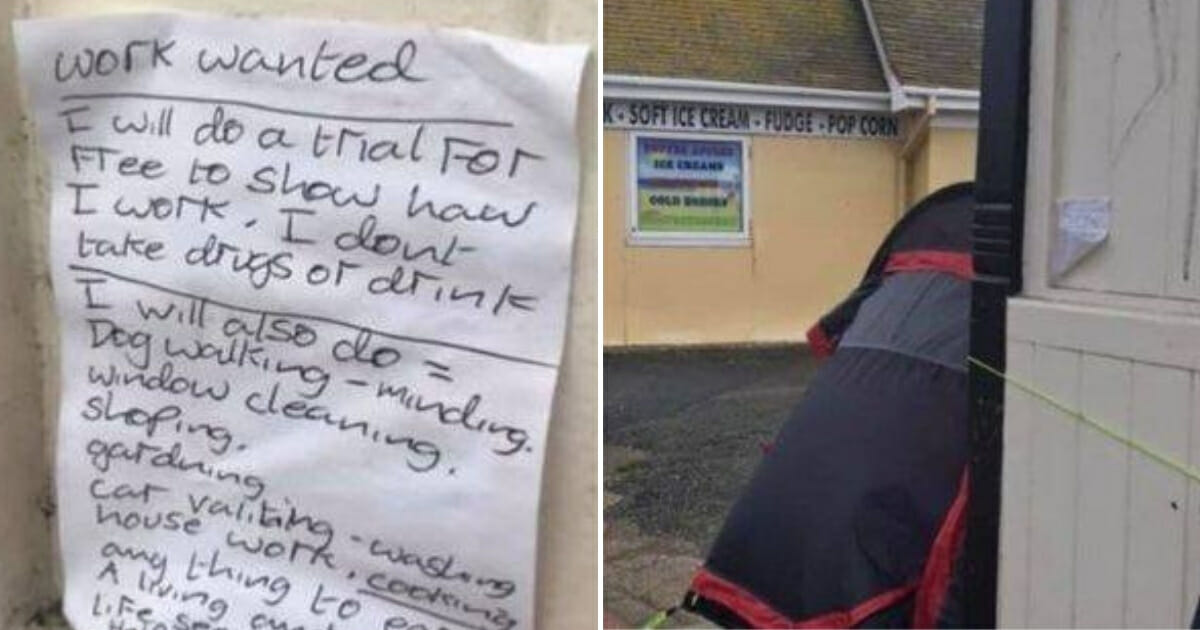 work wanted
I will do a trial For
Free to show haw
I work. I dont
take drugs or drink
I will also do =
Dog walking - minding.
window cleaning.
shoping.
gardning
car valiting - washing
house work. cooking
any thing to
A living
Life
K - SOFT ICE CREAM - FUDGE - POP CORN
ICE CREAMS
COLD DRINKS